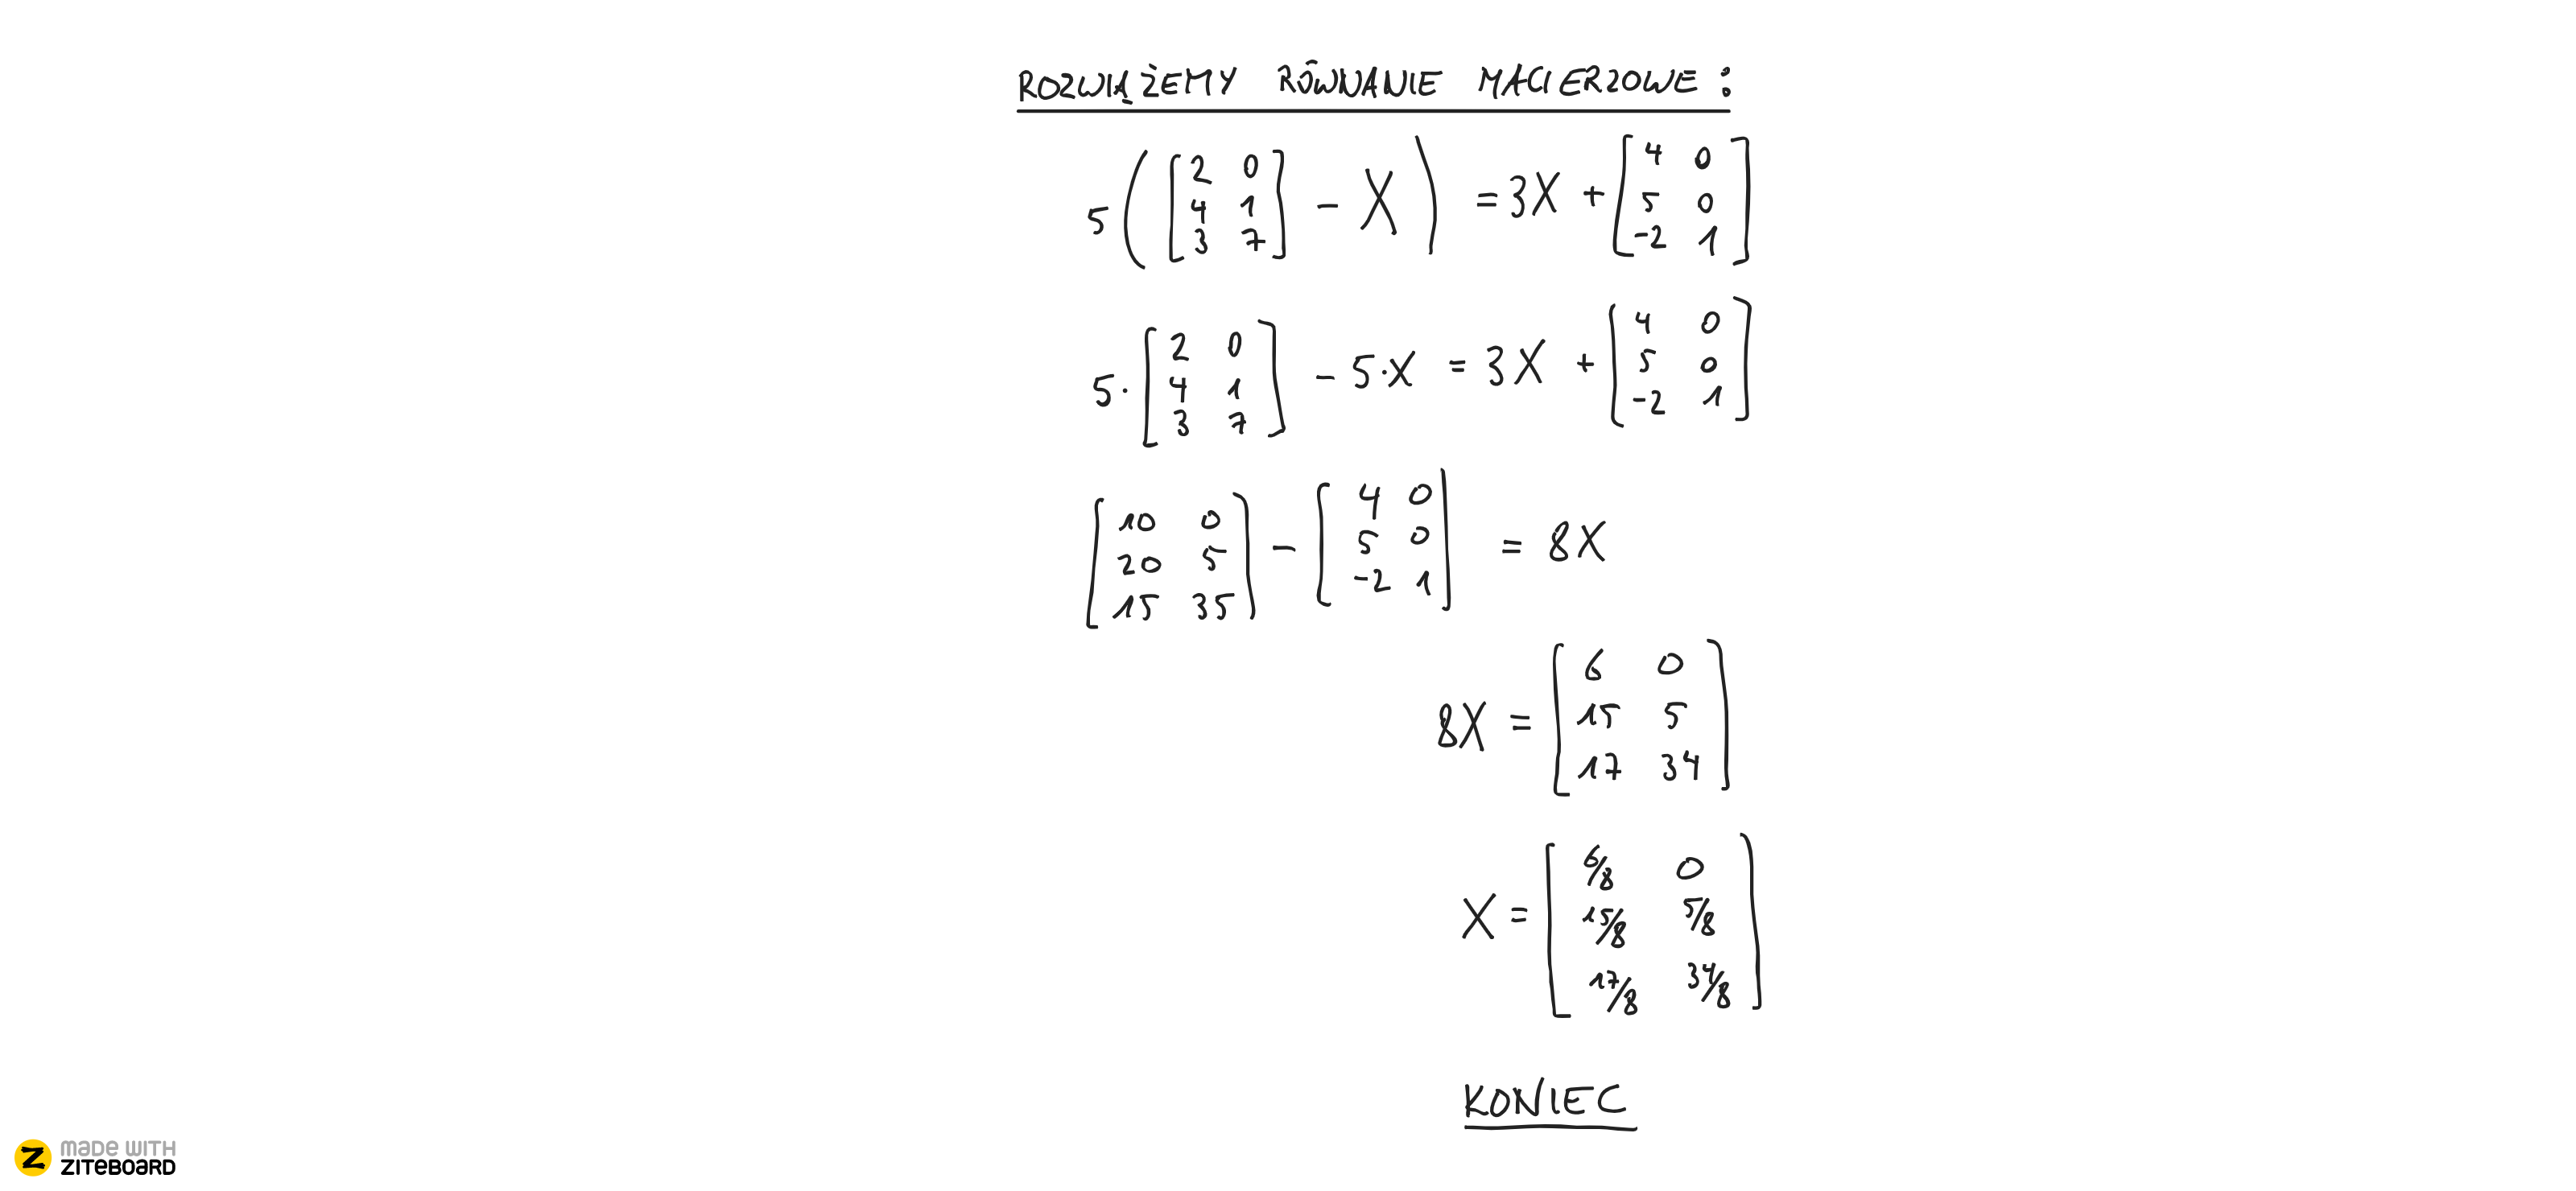 ROZWIĄŻEMY RÓWNANIE MACIERZOWE:
5([2 0; 4 1; 3 7] - X) = 3X + [4 0; 5 0; -2 1]
5·[2 0; 4 1; 3 7] - 5·X = 3X + [4 0; 5 0; -2 1]
[10 0; 20 5; 15 35] - [4 0; 5 0; -2 1] = 8X
8X = [6 0; 15 5; 17 34]
X = [6/8 0; 15/8 5/8; 17/8 34/8]
KONIEC
made with
ziteboard